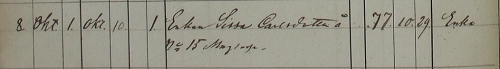 8 Okt. 1. Okt. 10. 1. Enkan Lissa Carlsdotter å 77. 10. 29. Enka
No 15